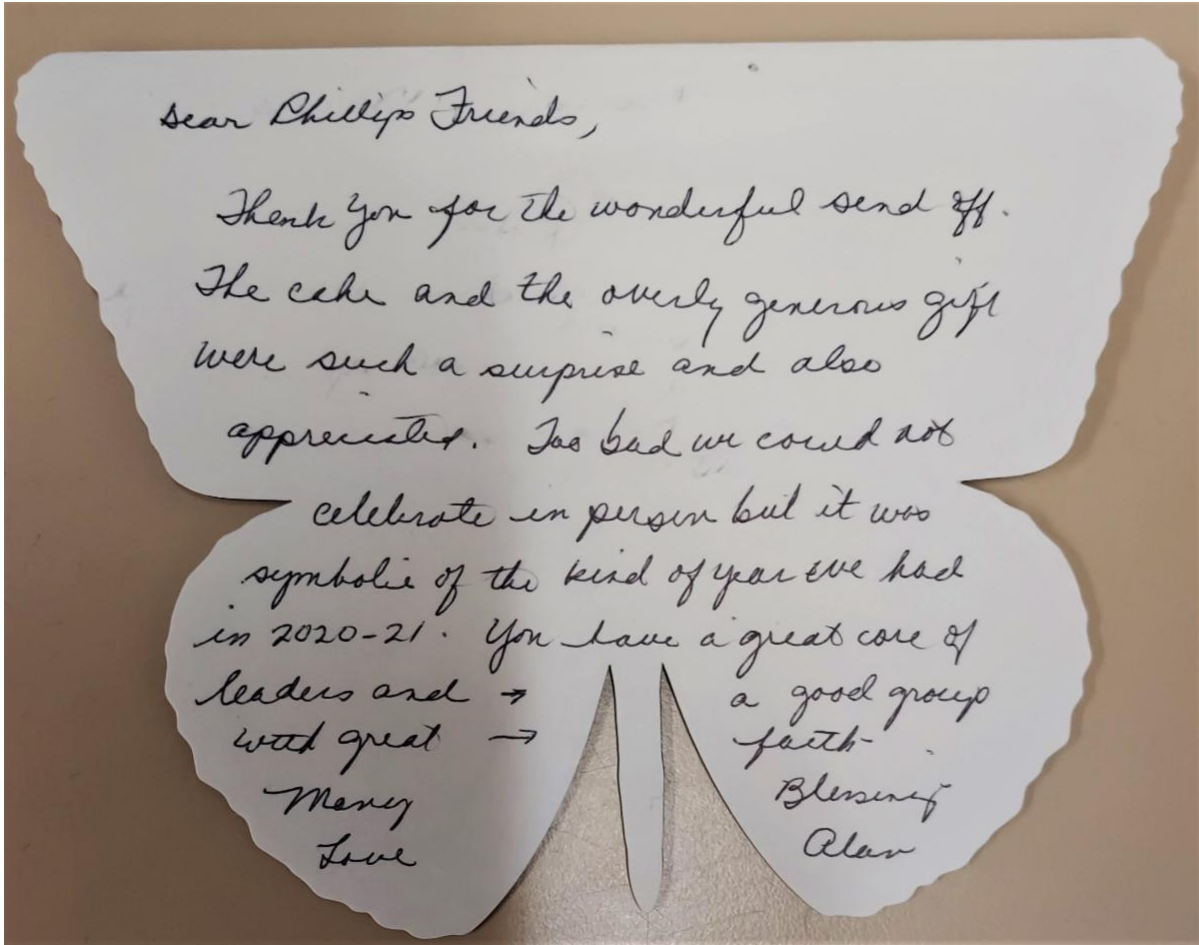 Dear Phillips Friends,
Thank You for the wonderful send off.
The cake and the overly generous gift
were such a surprise and also
appreciated. Too bad we could not
celebrate in person but it was
symbolic of the kind of year we had
in 2020-21. You have a great core of
leaders and → a good group
with great → faith
Many Blessings
Love Alan